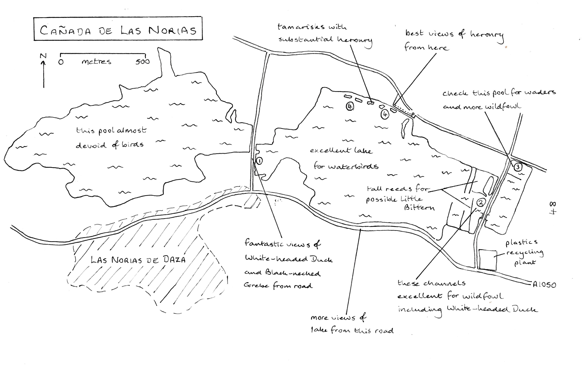 CAÑADA DE LAS NORIAS
N
0 metres 500
tamarisks with
substantial heronry
best views of heronry
from here
check this pool for waders
and more wildfowl
this pool almost
devoid of birds
excellent lake
for waterbirds
tall reeds for
possible Little
Bittern
1
2
3
4
4
LAS NORIAS DE DAZA
fantastic views of
White-headed Duck
and Black-necked
Grebe from road
more views of
lake from this road
these channels
excellent for wildfowl
including White-headed Duck
plastics
recycling
plant
A1050